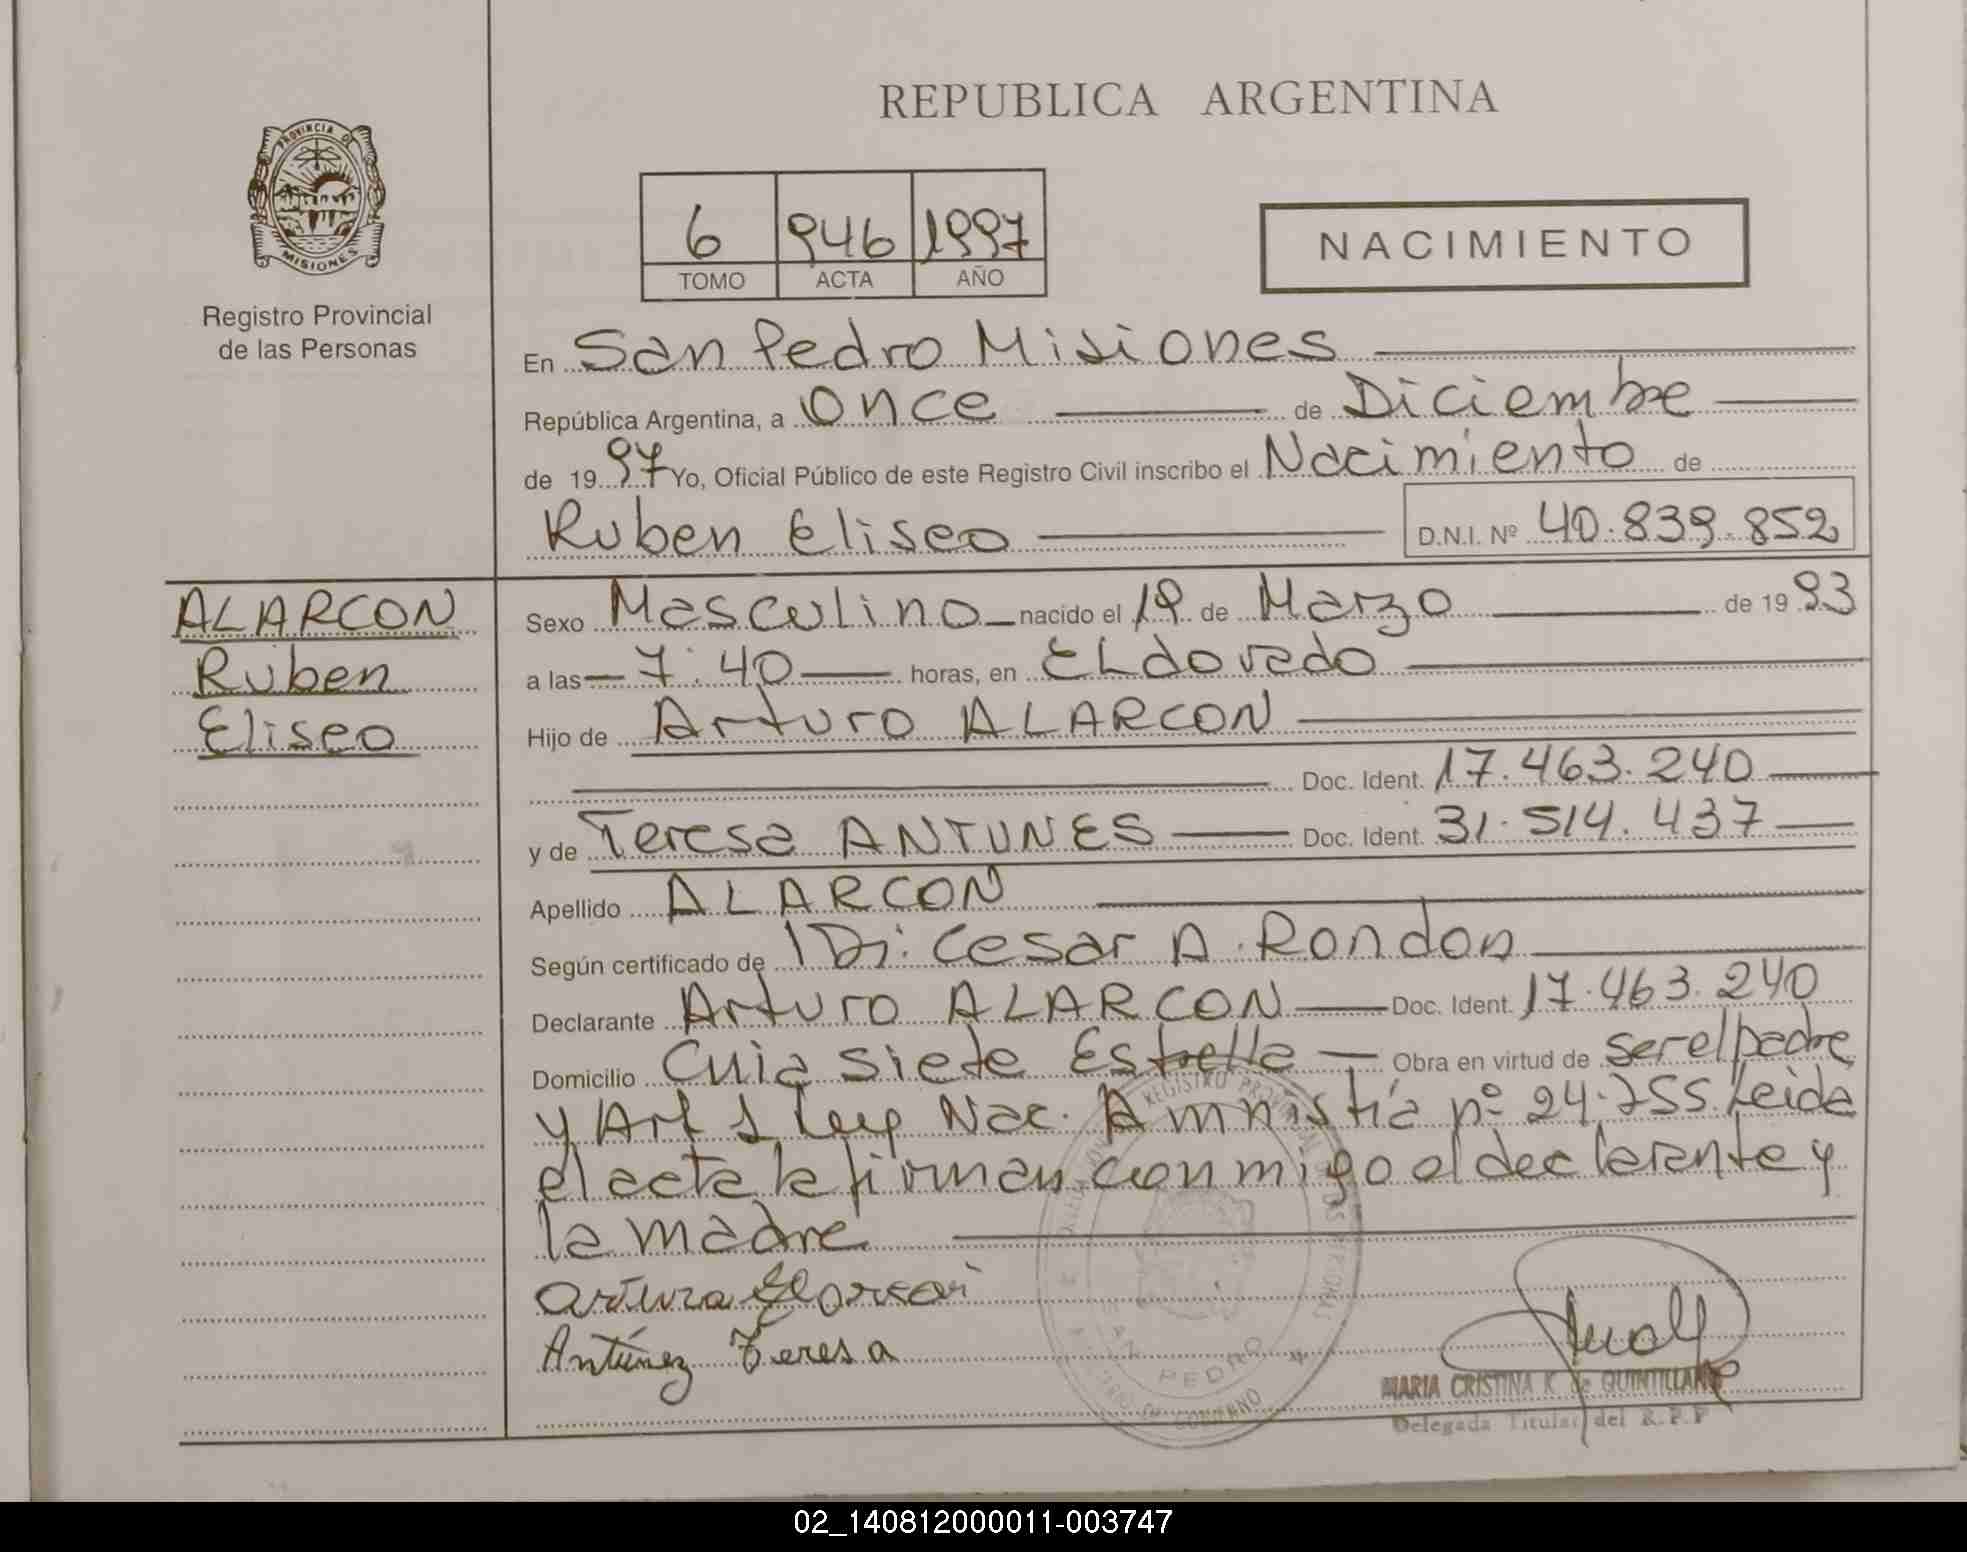 REPUBLICA ARGENTINA
PROVINCIA DE
MISIONES
Registro Provincial
de las Personas
6 946 1997
TOMO ACTA AÑO
NACIMIENTO
En San Pedro Misiones
República Argentina, a once de Diciembre
de 1997 Yo, Oficial Público de este Registro Civil inscribo el Nacimiento de
Ruben Eliseo D.N.I. Nº 40.839.852
ALARCON
Ruben
Eliseo
Sexo Masculino nacido el 19 de Marzo de 1993
a las 7:40 horas, en ELdorado
Hijo de Arturo ALARCON
Doc. Ident. 17.463.240
y de Teresa ANTUNES Doc. Ident. 31.514.437
Apellido ALARCON
Según certificado de Cesar A. Rondon
Declarante Arturo ALARCON Doc. Ident. 17.463.240
Domicilio Cuia siete Estrella Obra en virtud de ser el padre
y Art 1 Ley Nac. Amnistía nº 24.755. Leida
el acta la firman conmigo el declarante y
la madre
Arturo Alarcon
Antúnez Teresa
REGISTRO PROVINCIAL DE LAS PERSONAS
SAN PEDRO
MARIA CRISTINA K. de QUINTILLAN
Delegada Titular del R.P.P
02_140812000011-003747